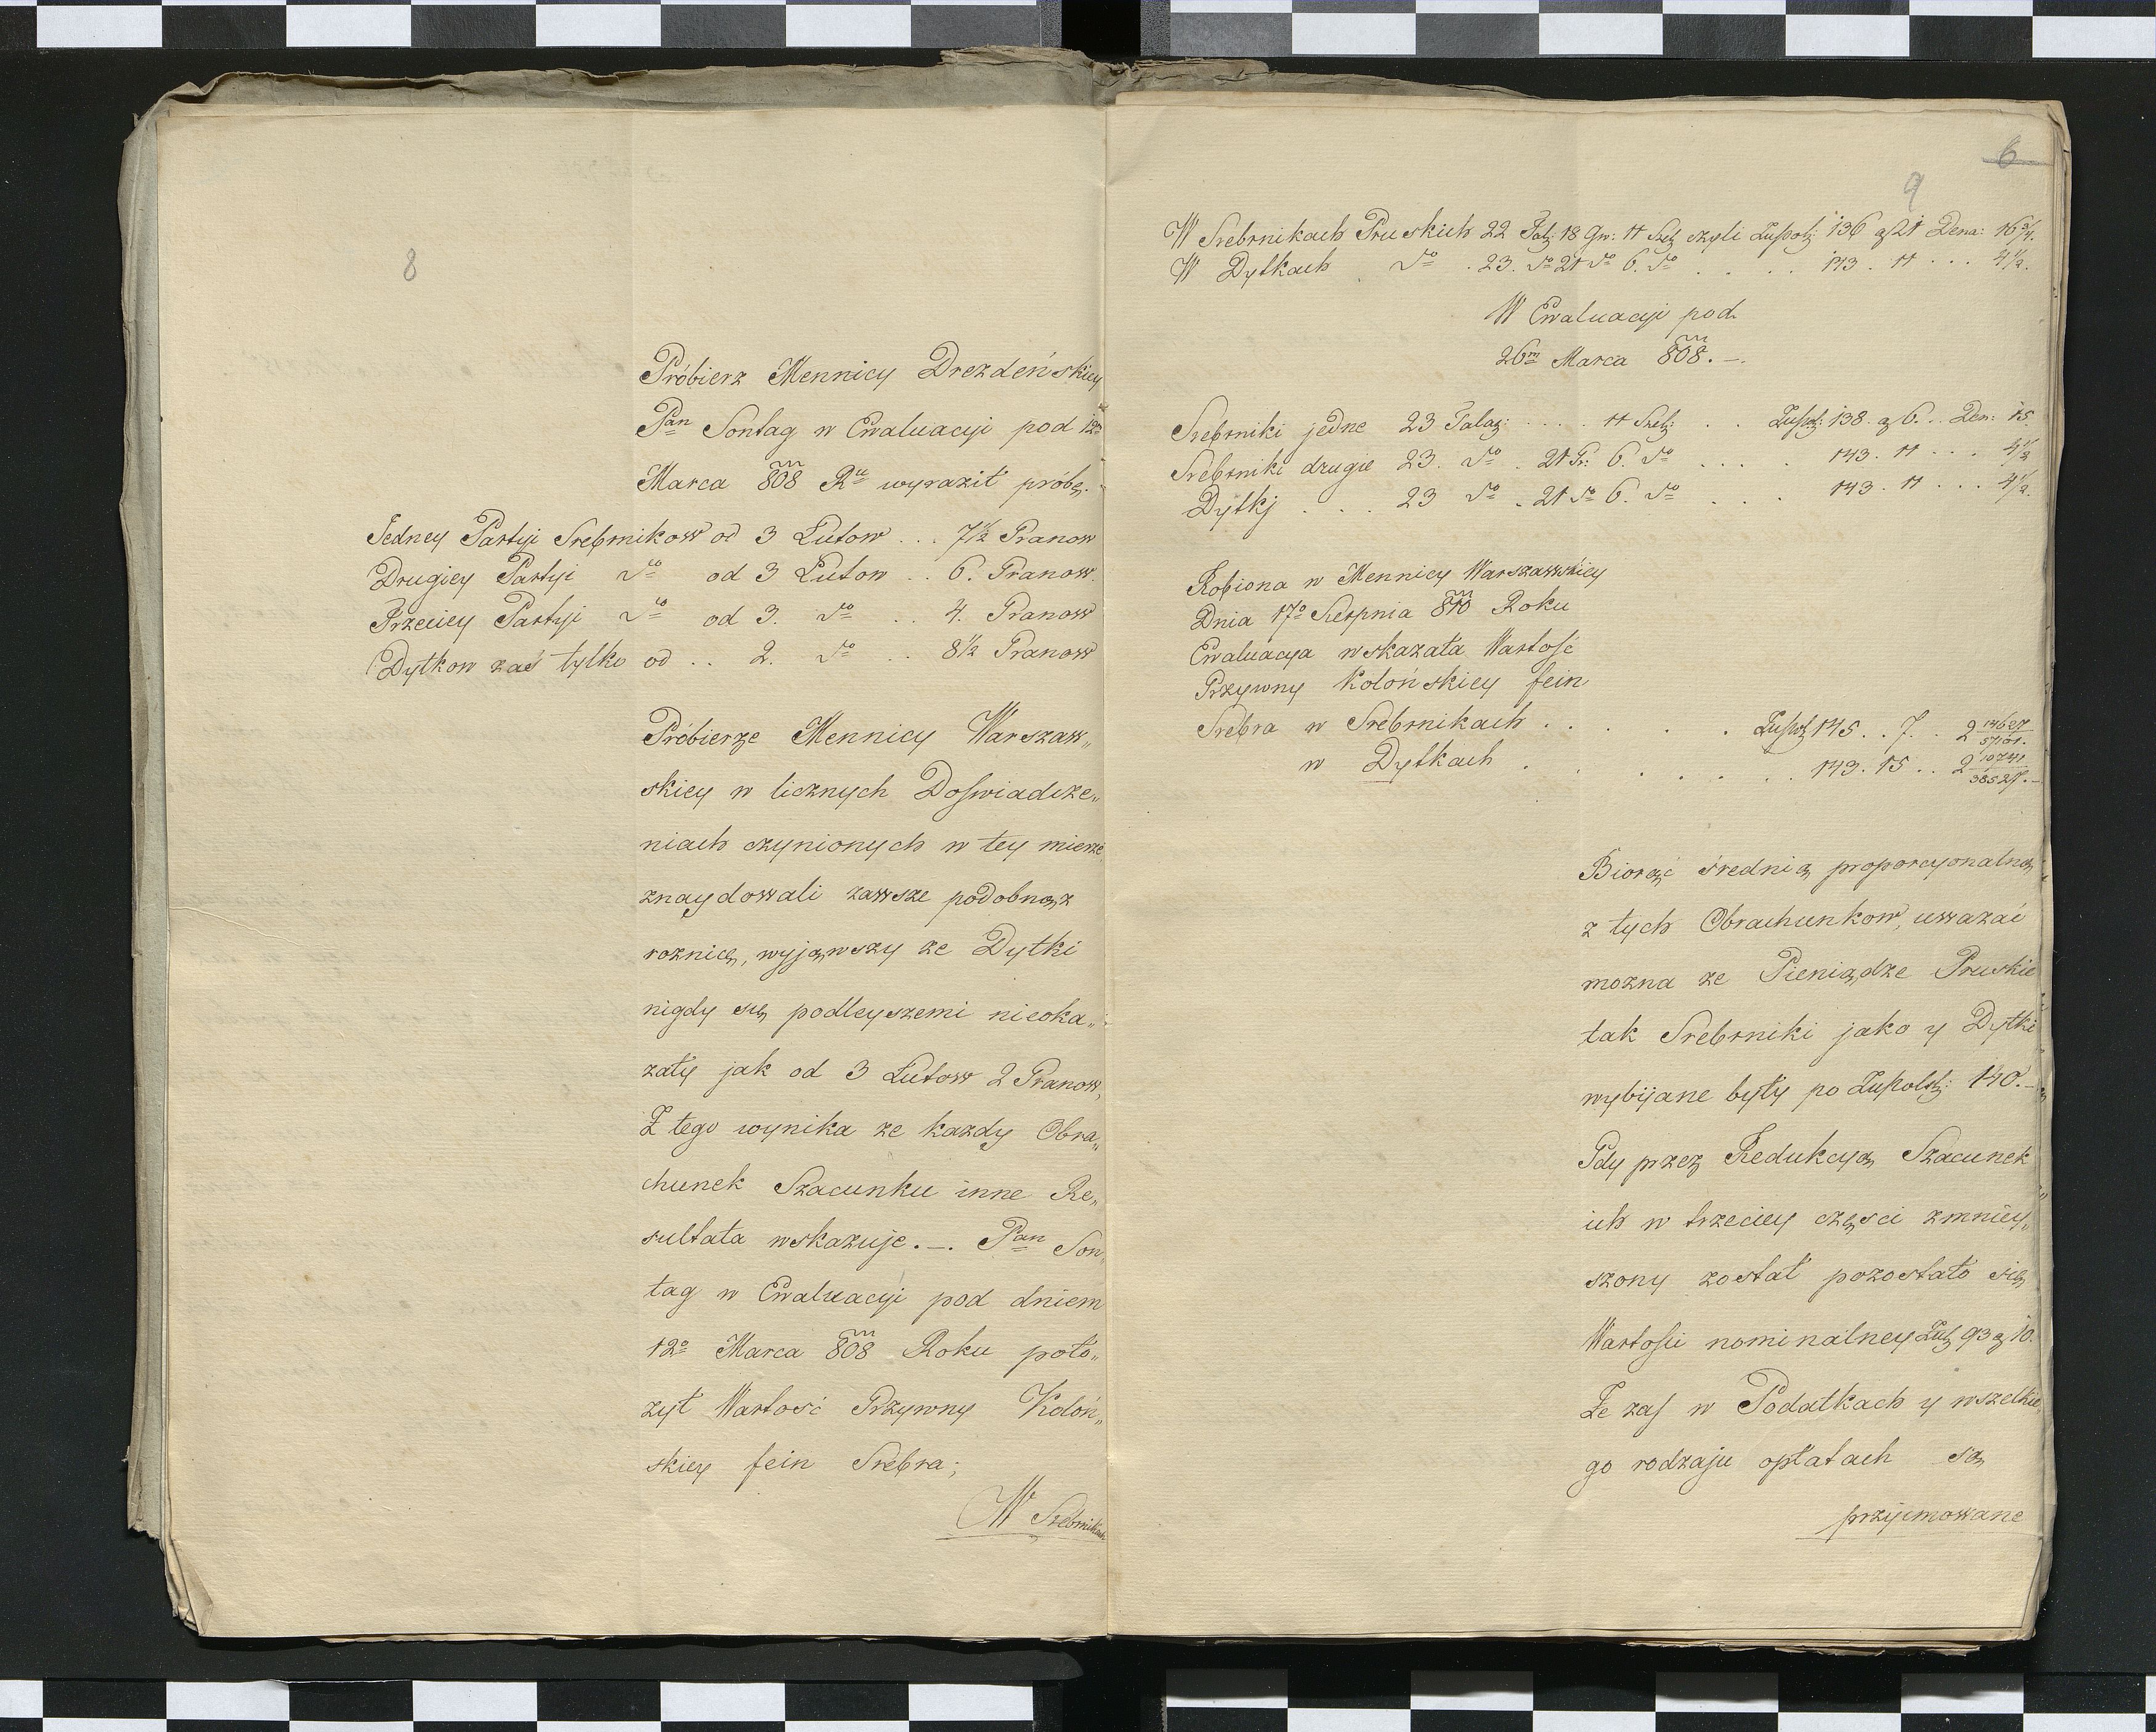 8
Próbierz Mennicy Drezdeńskiey
Pan Sontag w Ewaluacyi pod 12º
Marca 808 Ru wyraził próbę.
Jedney Partyi Srebrnikow od 3 Łutow ... 7½ Granow
Drugiey Partyi do od 3 Łutow .. 6. Granow
Trzeciey Partyi do od 3. do .. 4. Granow
Dytkow zaś tylko od .. 2. do .. 8½ Granow
Próbierze Mennicy Warszaw„
skiey w licznych Doswiadcze„
niach czynionych w tey mierze
znaydowali zawsze podobnąż
roznicę, wyjąwszy ze Dytki
nigdy się podleyszemi nieoka„
zały jak od 3 Łutow 2 Granow,
Z tego wynika ze kazdy Obra„
chunek Szacunku inne Re„
sultata wskazuje.—. Pan Son„
tag w Ewaluacyi pod dniem
12º Marca 808 Roku poło„
zył Wartość Grzywny Koloń„
skiey fein Srebra;
W Srebrnikach
6
9
W Srebrnikach Pruskich 22 Tal: 18 Gr: 11 Szel czyli Złpol: 136 g 21 Dena: 16¾.
W Dytkach do . 23. do 21 do 6. do . . . . 143 . 11 ... 4½.
W Ewaluacyi pod
26m Marca 808.—.
Srebrniki jedne 23 Talar: .... 11 Szel: .. Złpol: 138. g 6. .. Den: 15.
Srebrniki drugie 23. do . 21 Gr: 6. do .... 143. 11 ... 4½
Dytki ... 23 do . 21 do 6. do ... 143. 11 ... 4½.
Robiona w Mennicy Warszawskiey
Dnia 17º Sierpnia 810 Roku
Ewaluacya wskazała Wartość
Grzywny Kolońskiey fein
Srebra w Srebrnikach . . . . Złpol 145 .. 7. . 2 14627/57101.
w Dytkach . . . . . . . 143. 15 .. 2 10741/38527.—
Biorąc średnią proporcyonalną
z tych Obrachunkow, uwazać
mozna ze Pieniądze Pruskie
tak Srebrniki jako y Dytki
wybijane były po Złpols: 140.—
Gdy przez Redukcyą Szacunek
ich w trzeciey części zmniey„
szony został pozostało się
Wartości nominalney Złp 93 g 10.
Ze zas w Podatkach y wszelkie„
go rodzaju opłatach są
przyjmowane